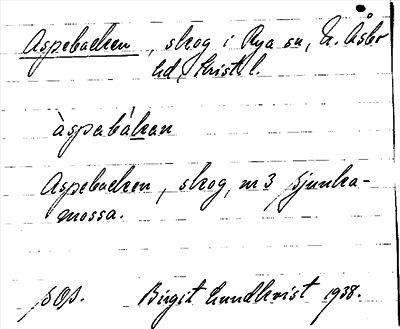 Aspebacken, skog i Rya sn, N. Åsbo
hd, Krist. l.
àspəbákən
Aspebacken, skog, nr 3 Sjunka-
mossa.
Birgit Lundkvist 1938.